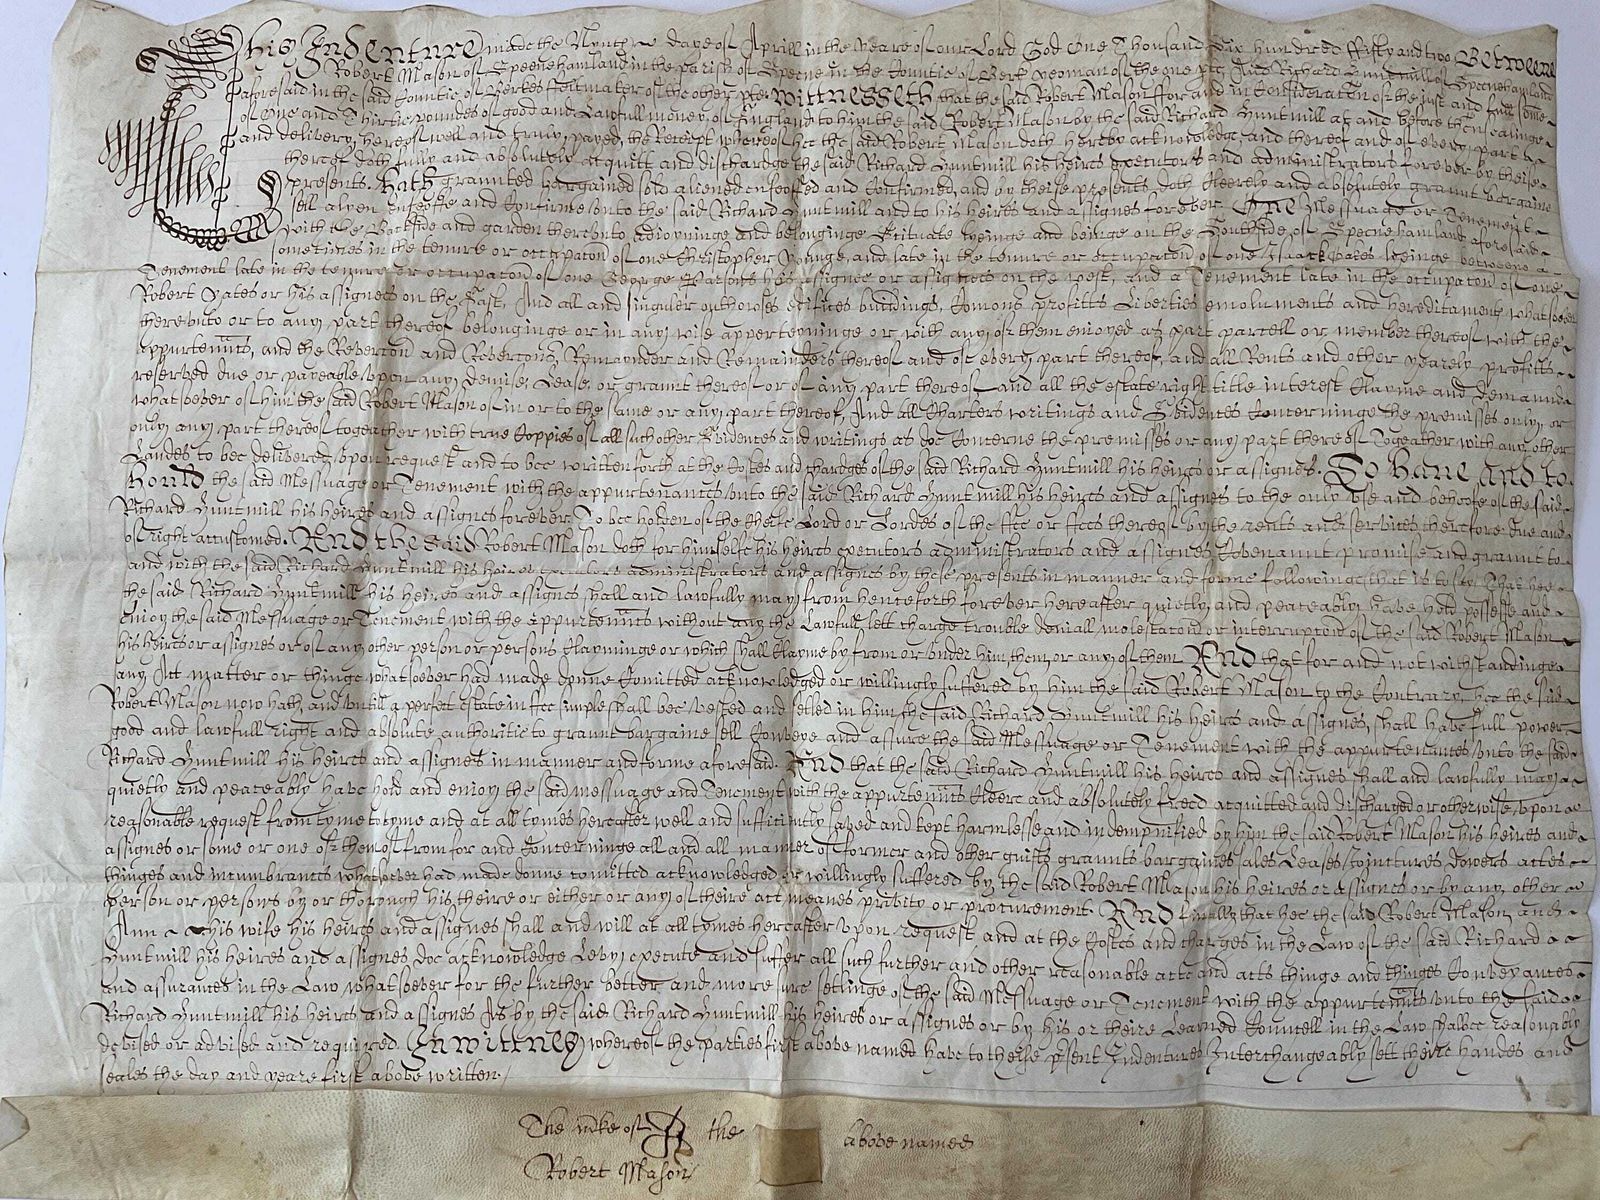 This Indenture made the Nynth daye of Aprill in the yeare of our Lord God One Thousand Six hundred fifty and two Betweene
Robert Mason of Speenehamland in the parish of Speene in the Countie of Berk yeoman of the one pte And Richard Huntmill of Speenehamland
aforesaid in the said Countie of Berkes of the other pte Wittnesseth that the said Robert Mason ffor and in Consideraton of the just and full some
of One and Thirtie pounds of good and Lawfull money of England to him the said Robert Mason by the said Richard Huntmill at and before thensealinge
and delivery hereof well and truly payed, the Receipt whereof hee the said Robert Mason doth hereby acknowledge, and thereof and of every part
thereof doth fully and absolutely acquitt and dischardge the said Richard Huntmill his heires executors and administrators forever by theise
presents. Hath graunted bargained sold aliened enfeoffed and Confirmed, and by theise presents doth Cleerely and absolutely graunt bargaine
sell alyen enfeoffe and Confirme unto the said Richard Huntmill and to his heires and assignes forever One Messuage or Tenement
with the Backside and garden thereunto adioyninge and belonginge Scituate lyeinge and beinge on the Southside of Speenehamland aforesaid
sometimes in the tenure or occupaton of one Christopher Younge, and late in the tenure or occupaton of one Isaack Yates lyeinge betweene a
Tenement late in the tenure or occupaton of one George Parsons his assignee or assignes on the west, and a Tenement late in the occupaton of one
Robert Yates or his assignes on the East, And all and singuler outhowses edifices buildings, Comons profitts Liberties emoluments and hereditaments whatsoever
thereunto or to any part thereof belonginge or in any wise apperteyninge or with any of them enioyed as part parcell or member thereof with the
appurtennts, and the Reverton and Revertons, Remaynder and Remainders thereof and of every part thereof, and all Rents and other yearely profitts
reserved due or payeable upon any demise, Lease, or graunt thereof or of any part thereof and all the estate right title interest Clayme and demaund
whatsoever of him the said Robert Mason of in or to the same or any part thereof, And all Charters writings and Evidences Concerninge the premisses only, or
only any part thereof togeather with true Coppies of all such other Evidences and writings as doe Concerne the premisses or any part thereof Togeather with any other
Landes to bee delivered upon request and to bee written forth at the Costes and chardges of the said Richard Huntmill his heires or assignes. To have and to
hould the said Messuage or Tenement with the appurtenances unto the said Richard Huntmill his heires and assignes to the only use and behoofe of the said
Richard Huntmill his heires and assignes forever. To bee holden of the cheife Lord or Lordes of the ffee or ffees thereof by the rents and services therefore due and
of right accustomed. And the said Robert Mason doth for himselfe his heires executors administrators and assignes Covenaunt promise and graunt to
and with the said Richard Huntmill his heires executors administrators and assignes by these presents in manner and forme followinge, that is to say That hee
the said Richard Huntmill his heires and assignes shall and lawfully may from henceforth forever hereafter quietly and peaceably have hold possesse and
enioy the said Messuage or Tenement with the appurtennts without any the Lawfull lett charge trouble deniall molestacon or interrupton of the said Robert Mason
his heires or assignes or of any other person or persons Clayminge or which shall Clayme by from or under him them or any of them And that for and notwithstandinge
any Act matter or thinge whatsoever had made donne Comitted acknowledged or willingly suffered by him the said Robert Mason to the Contrary, hee the said
Robert Mason now hath, and untill a perfect estate in ffee simple shall bee vested and setled in him the said Richard Huntmill his heires and assignes, shall have full power
good and lawfull right and absolute authoritie to graunt bargaine sell Conveye and assure the said Messuage or Tenement with the appurtenances unto the said
Richard Huntmill his heires and assignes in manner and forme aforesaid. And that the said Richard Huntmill his heires and assignes shall and lawfully may
quietly and peaceably have hold and enioy the said messuage and Tenement with the appurtennts Cleere and absolutely freed acquitted and discharged or otherwise, upon
reasonable request from tyme to tyme and at all tymes hereafter well and sufficiently saved and kept harmlesse and indempnified by him the said Robert Mason his heires and
assignes or some or one of them of from for and Concerninge all and all manner of former and other guifts graunts bargaines sales Leases Jointures dowers actes
thinges and incumbrances whatsoever had made donne comitted acknowledged or willingly suffered by the said Robert Mason his heires or assignes or by any other
person or persons by or thorough his, theire or either or any of theire act meanes privity or procurement. And finally that hee the said Robert Mason and
Ann his wife his heires and assignes shall and will at all tymes hereafter upon request and at the Costes and charges in the Law of the said Richard
Huntmill his heires and assignes doe acknowledge Levy execute and suffer all such further and other reasonable acte and acts thinge and thinges Conveyances
and assurances in the Law whatsoever for the further better and more sure setlinge of the said Messuage or Tenement with the appurtennts unto the said
Richard Huntmill his heires and assignes As by the said Richard Huntmill his heires or assignes or by his or theire Learned Councell in the Law shalbee reasonably
devised or advised and required. In wittnes whereof the parties first above named have to theise psent Indentures Interchangeably sett theire handes and
seales the day and yeare first above written.
The mke of R the above named
Robert Mason